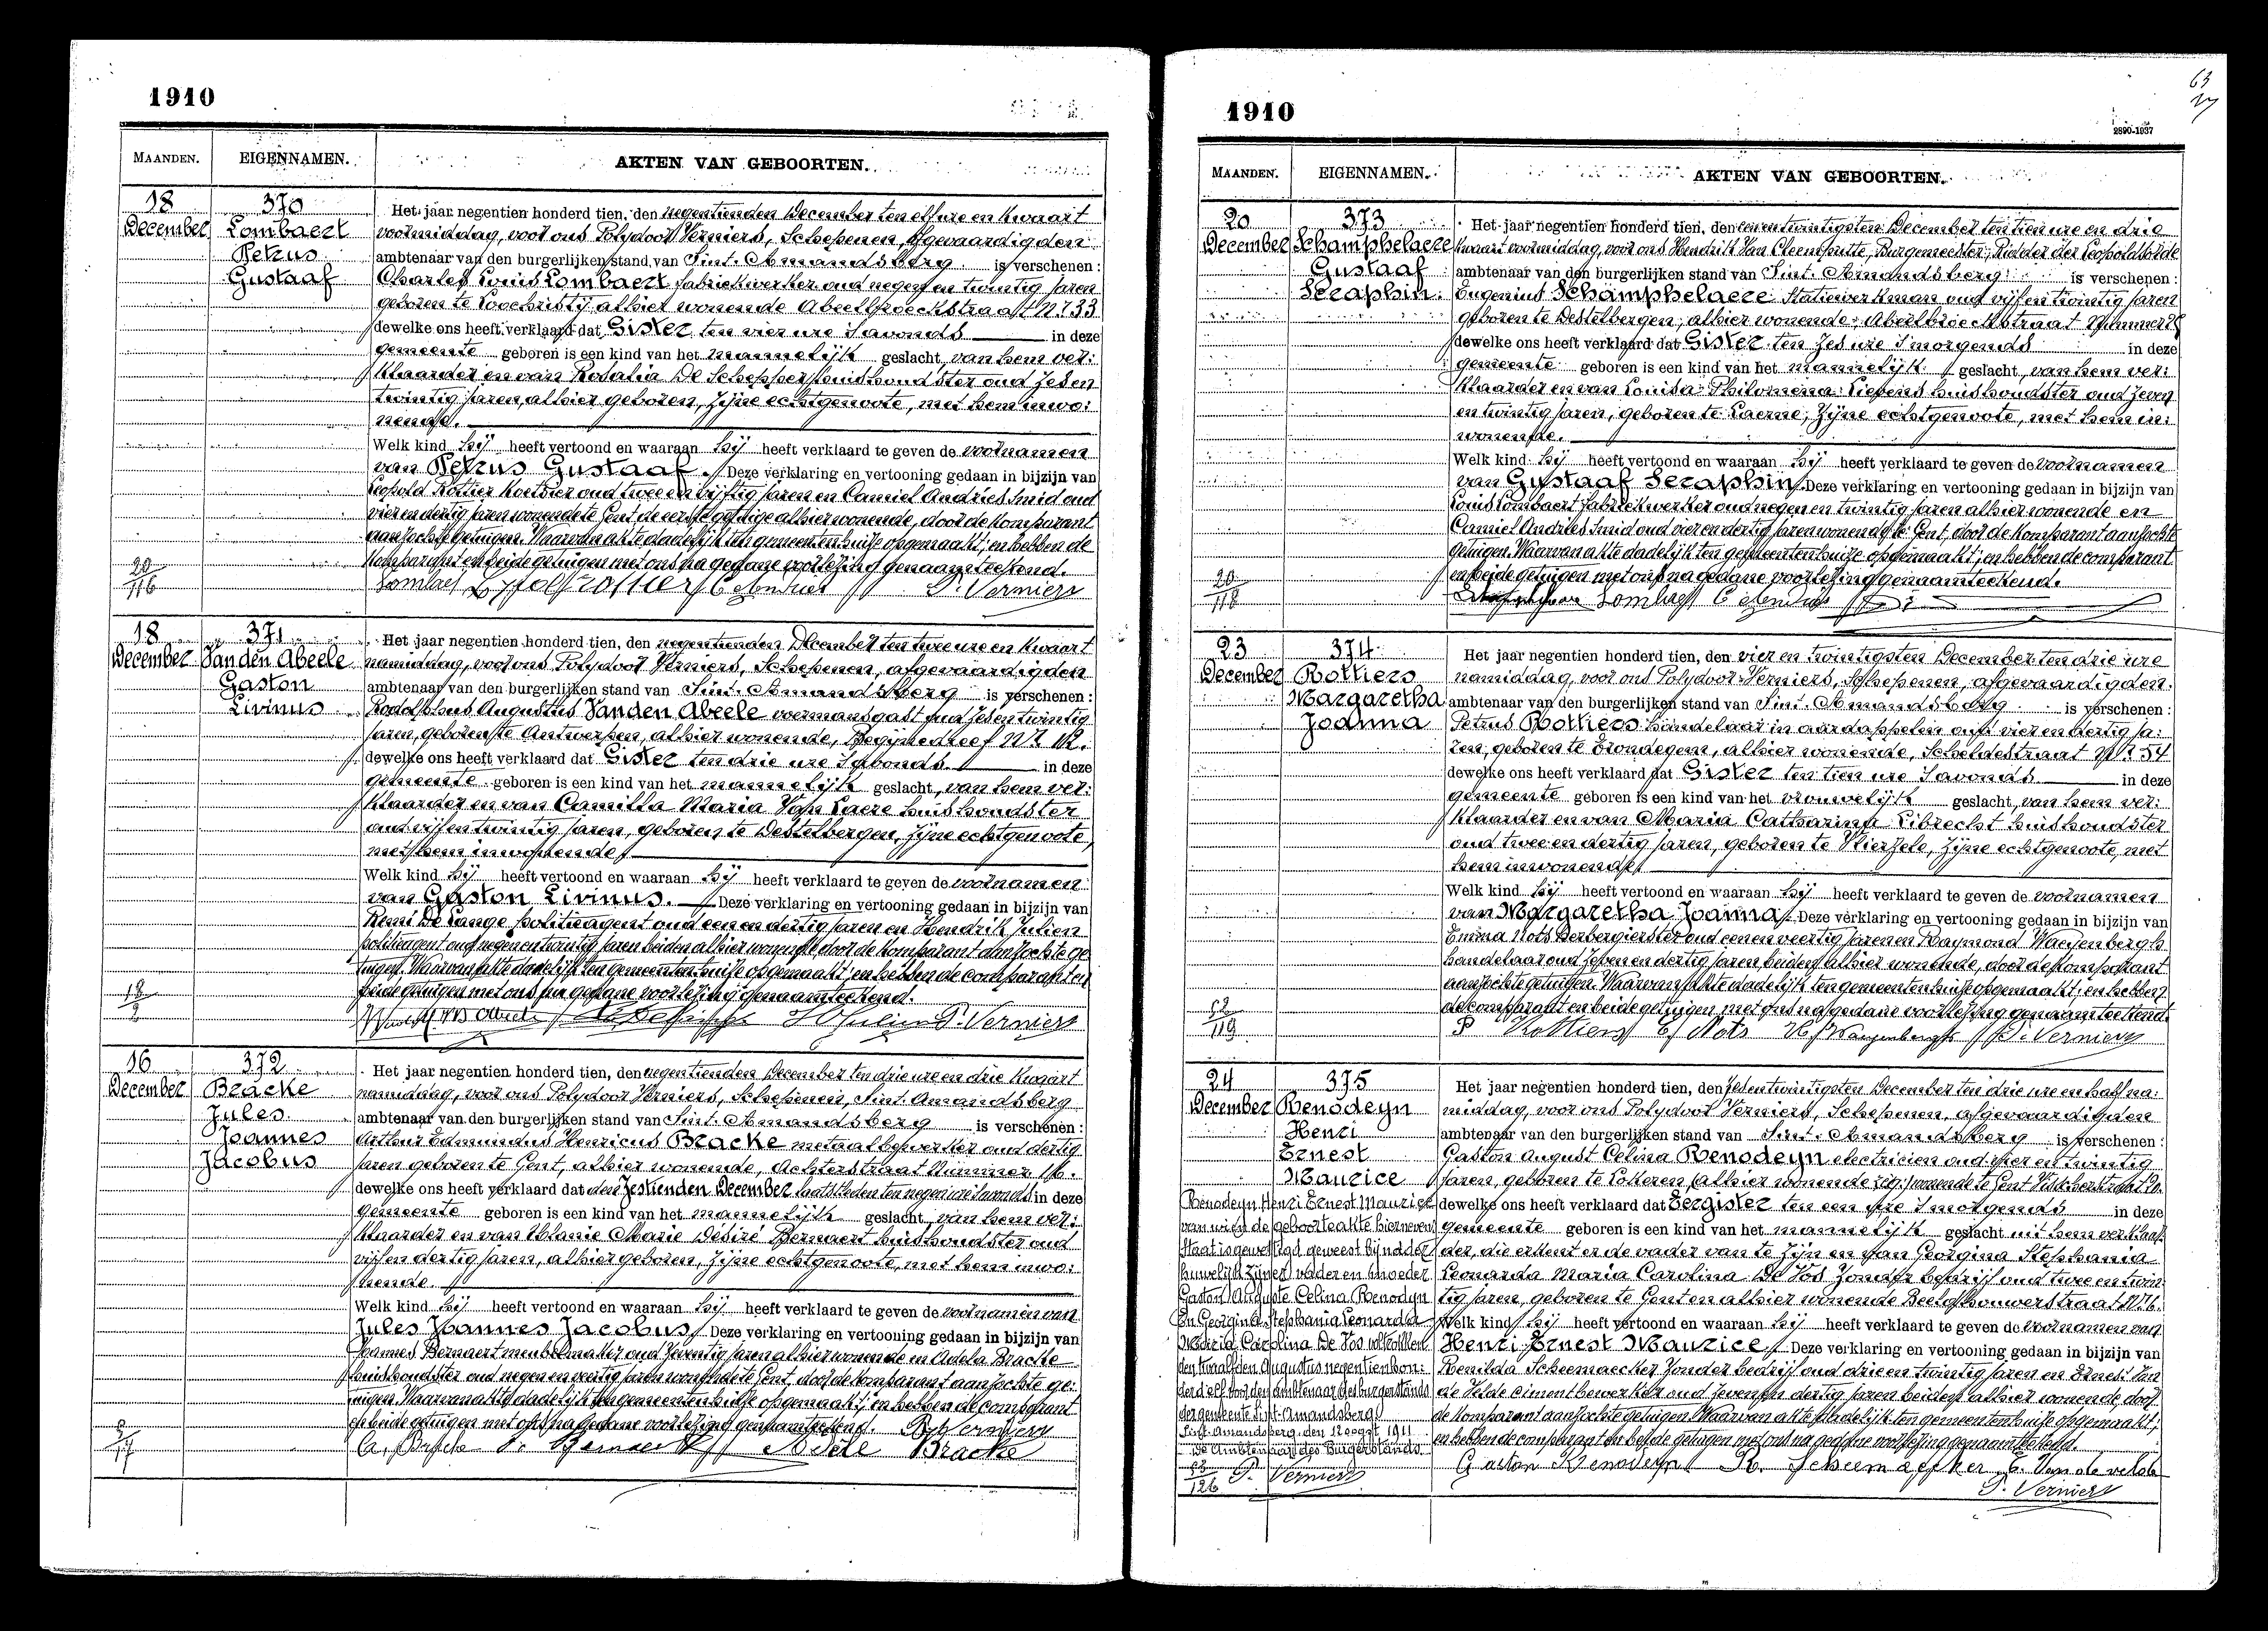 1910
MAANDEN. EIGENNAMEN. AKTEN VAN GEBOORTEN.
18 December
370
Lombaert
Petrus
Gustaaf
Het jaar negentien honderd tien, den negentienden December ten elf ure en kwaart
voormiddag, voor ons Polydoor Verniers, Schepenen, afgevaardigden
ambtenaar van den burgerlijken stand van Sint-Amandsberg is verschenen :
Charles Louis Lombaert fabriekwerker oud negen en twintig jaren
geboren te Loochristy, alhier wonende Abeelbroeckstraat Nr 33
dewelke ons heeft verklaard dat Gister ten vier ure s'avonds in deze
gemeente geboren is een kind van het mannelijk geslacht, van hem ver:
klaarder en van Rosalia De Schepper huishoudster oud zes en
twintig jaren, alhier geboren, zijne echtgenoote, met hem inwo:
nende.
Welk kind hij heeft vertoond en waaraan hij heeft verklaard te geven de voornamen
van Petrus Gustaaf. Deze verklaring en vertooning gedaan in bijzijn van
Leopold Rottier koetsier oud twee en vijftig jaren en Camiel Andries smid oud
vier en dertig jaren wonende te Gent de eerste getuige alhier wonende, door de komparant
aanzochte getuigen. Waarvan akte dadelijk ten gemeentenhuise opgemaakt; en hebben de
komparant en beide getuigen met ons na gedane voorlezing genaamteekend.
20
116
Lombaert Leopold Rottier C Andries P. Verniers
18 December
371
Van den Abeele
Gaston
Livinus
Het jaar negentien honderd tien, den negentienden December ten twee ure en kwaart
namiddag, voor ons Polydoor Verniers, Schepenen, afgevaardigden
ambtenaar van den burgerlijken stand van Sint-Amandsberg is verschenen :
Rodolphus Augustus Van den Abeele voermansgast oud zes en twintig
jaren, geboren te Antwerpen, alhier wonende, Begijnedreef Nr
dewelke ons heeft verklaard dat Gister ten drie ure s'avonds in deze
gemeente geboren is een kind van het mannelijk geslacht, van hem ver:
klaarder en van Camilla Maria Van Laere huishoudster
oud vijf en twintig jaren, geboren te Destelbergen, zijne echtgenoote,
met hem inwonende
Welk kind hij heeft vertoond en waaraan hij heeft verklaard te geven de voornamen
van Gaston Livinus. Deze verklaring en vertooning gedaan in bijzijn van
Remi De Lange politieagent oud een en dertig jaren en Hendrik Julien
politieagent oud negen en twintig jaren beiden alhier wonende door de komparant aanzochte ge
tuigen. Waarvan akte dadelijk ten gemeentenhuise opgemaakt; en hebben de comparant en
beide getuigen met ons na gedane voorlezing genaamteekend.
18
2
H Julien P. Verniers
16 December
372
Bracke
Jules
Joannes
Jacobus
Het jaar negentien honderd tien, den negentienden December ten drie ure en drie kwaart
namiddag, voor ons Polydoor Verniers, Schepenen, Sint-Amandsberg
ambtenaar van den burgerlijken stand van Sint-Amandsberg is verschenen :
Arthur Edmundus Henricus Bracke metaalbewerker oud dertig
jaren geboren te Gent, alhier wonende, Achterstraat Nummer 16.
dewelke ons heeft verklaard dat den Zestienden December laatstleden ten negen ure s'avonds in deze
gemeente geboren is een kind van het mannelijk geslacht, van hem ver:
klaarder en van Melanie Marie Désiré Bernaert huishoudster oud
vijf en dertig jaren, alhier geboren, zijne echtgenoote, met hem inwo:
nende.
Welk kind hij heeft vertoond en waaraan hij heeft verklaard te geven de voornamen van
Jules Joannes Jacobus Deze verklaring en vertooning gedaan in bijzijn van
Joannes Bernaert meubelmaker oud zeventig jaren alhier wonende en Adela Bracke
huishoudster oud negen en veertig jaren wonende te Gent, door de komparant aanzochte ge:
tuigen. Waarvan akte dadelijk ten gemeentenhuise opgemaakt; en hebben de comparant
en beide getuigen met ons na gedane voorlezing genaamteekend. P. Verniers
17
A. Bracke J. Bernaert Adèle Bracke
63
1910
2890-1037
MAANDEN. EIGENNAMEN. AKTEN VAN GEBOORTEN.
20 December
373
Schamphelaere
Gustaaf
Seraphin
Het jaar negentien honderd tien, den een en twintigsten December ten tien ure en drie
kwaart voormiddag, voor ons Hendrik Van Cleemputte, Burgemeester, Ridder der Leopoldsorde
ambtenaar van den burgerlijken stand van Sint-Amandsberg is verschenen :
Eugenius Schamphelaere Statiewerkman oud vijf en twintig jaren
geboren te Destelbergen, alhier wonende, Abeelbroeckstraat Nummer
dewelke ons heeft verklaard dat Gister ten zes ure s'morgends in deze
gemeente geboren is een kind van het mannelijk geslacht, van hem ver:
klaarder en van Louisa Philomena Liefens huishoudster oud zeven
en twintig jaren, geboren te Laerne, zijne echtgenoote, met hem in:
wonende.
Welk kind hij heeft vertoond en waaraan hij heeft verklaard te geven de voornamen
van Gustaaf Seraphin. Deze verklaring en vertooning gedaan in bijzijn van
Louis Lombaert fabriekwerker oud negen en twintig jaren alhier wonende en
Camiel Andries smid oud vier en dertig jaren wonende te Gent, door de komparant aanzochte
getuigen. Waarvan akte dadelijk ten gemeentenhuise opgemaakt; en hebben de comparant
en beide getuigen met ons na gedane voorlezing genaamteekend.
20
118
Lombaert C Andries
23 December
374
Rottiers
Margaretha
Joanna
Het jaar negentien honderd tien, den vier en twintigsten December ten drie ure
namiddag, voor ons Polydoor Verniers, Schepenen, afgevaardigden
ambtenaar van den burgerlijken stand van Sint-Amandsberg is verschenen :
Petrus Rottiers handelaar in aardappelen oud vier en dertig ja:
ren, geboren te Erondegem, alhier wonende, Scheldestraat Nr 54
dewelke ons heeft verklaard dat Gister ten tien ure s'avonds in deze
gemeente geboren is een kind van het vrouwelijk geslacht, van hem ver:
klaarder en van Maria Catharina Librecht huishoudster
oud twee en dertig jaren, geboren te Vlierzele, zijne echtgenoote, met
hem inwonende
Welk kind hij heeft vertoond en waaraan hij heeft verklaard te geven de voornamen
van Margaretha Joanna. Deze verklaring en vertooning gedaan in bijzijn van
Emma Nots Herbergierster oud een en veertig jaren en Raymond Waeyenbergh
handelaar oud zeven en dertig jaren, beiden alhier wonende, door de komparant
aanzochte getuigen. Waarvan akte dadelijk ten gemeentenhuise opgemaakt; en hebben
de comparant en beide getuigen met ons na gedane voorlezing genaamteekend.
52
119
P Rottiers E Nots Waeyenbergh P. Verniers
24 December
375
Benodeyn
Henri
Ernest
Maurice
Het jaar negentien honderd tien, den zes en twintigsten December ten drie ure en half na:
middag, voor ons Polydoor Verniers, Schepenen, afgevaardigden
ambtenaar van den burgerlijken stand van Sint-Amandsberg is verschenen :
Gaston August Celina Benodeyn electricien oud vier en twintig
jaren, geboren te Lokeren wonende te Gent
dewelke ons heeft verklaard dat Eergister ten een ure s'morgends in deze
gemeente geboren is een kind van het mannelijk geslacht uit hem verklaar:
der, die erkent er de vader van te zijn en van Georgina Stephania
Leonarda Maria Carolina De Vos zonder bedrijf oud twee en twin:
tig jaren, geboren te Gent en alhier wonende Beeldhouwerstraat Nr 6.
Welk kind hij heeft vertoond en waaraan hij heeft verklaard te geven de voornamen van
Henri Ernest Maurice. Deze verklaring en vertooning gedaan in bijzijn van
Renilda Scheemaecker zonder bedrijf oud drie en twintig jaren en Ernest Van
de Velde cimentbewerker oud zeven en dertig jaren beiden alhier wonende, door
de komparant aanzochte getuigen Waarvan akte dadelijk ten gemeentenhuise opgemaakt;
en hebben de comparant en beide getuigen met ons na gedane voorlezing genaamteekend.
Benodeyn Henri Ernest Maurice
van wien de geboorteakte hierneven
staat is gewettigd geweest bij
huwelijk zijner vader en moeder
Gaston Auguste Celina Benodeyn
En Georgina Stephania Leonarda
Maria Carolina De Vos voltrokken
den twaalfden Augustus negentien hon:
derd elf voor den ambtenaar des burgerstands
der gemeente Sint-Amandsberg
Sint-Amandsberg, den 12 Oogst 1911
De Ambtenaar des Burgerstands
P. Verniers
126
Gaston Benodeyn R. Scheemaecker E. Van de velde
P. Verniers